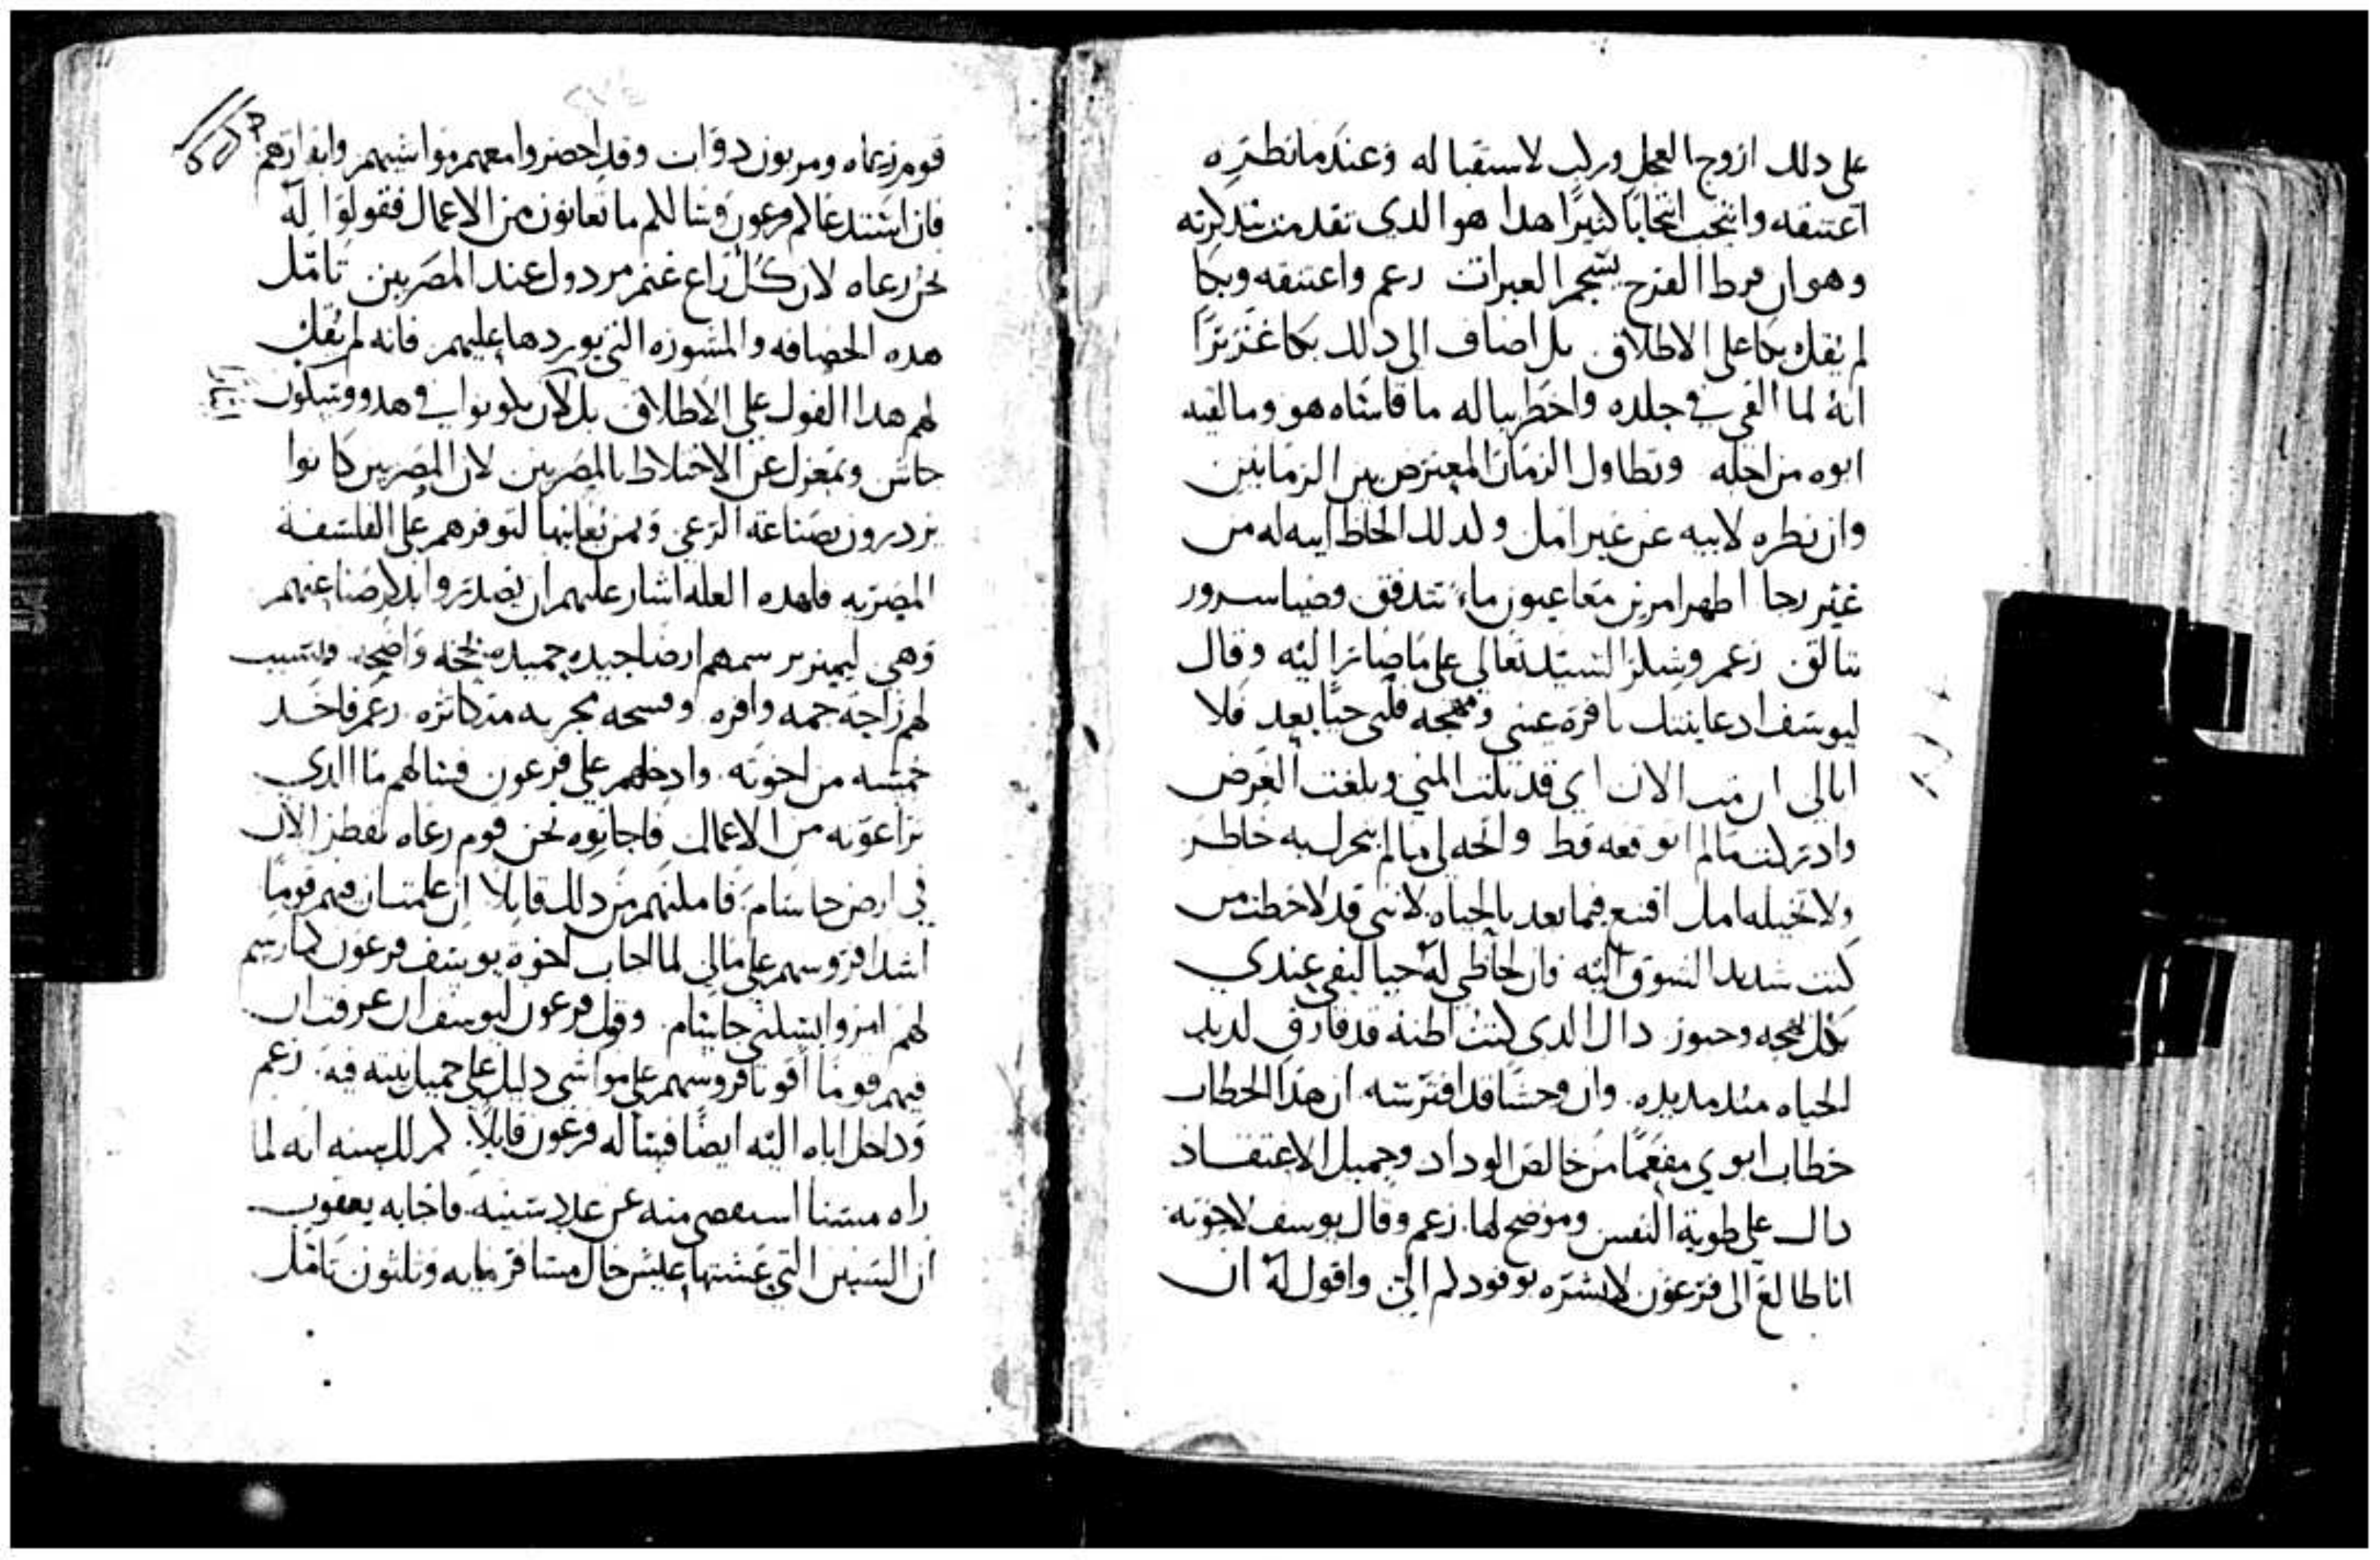 على دلك ازوج العجل وركب لاستقباله وعندما نظره
اعتنقه وانتحب انتحابًا كثيرًا هدا هو الدي تقدمت بتدكرته
وهو ان فرط الفرح يسجم العبرات زعم واعتنقه وبكا
لم يقل بكا على الاطلاق بل اضاف الى دلك بكا غزيرًا
انه لما القي في جلده واخطر بباله ما قاساه هو وما لقيه
ابوه من اجله وتطاول الزمان المعترض بين الزمانين
وان نظره لابيه عن غير امل ولدلك الحاظ ابيه له من
غير رجا اظهر امرين معا عيون ماء تتدفق وضيا سرور
تتالق زعم وشكر السيد تعالى على ما صار اليه وقال
ليوسف اد عاينتك يا قرة عيني ومهجه قلبي حيًا بعد فلا
ابالي ان مت الان اي قد نلت المني وبلغت الغرض
وادركت مالم اتوقعه قط واتجه لي مالم يتحرك به خاطر
ولا تخيله امل اقنع فيما بعد بالحياه لانني قد لاحظت من
كنت شديد الشوق اليه فان لحاظي له حيا اليفي عندي
بكل بهجه وحبور داك الدي كنت اظنه قد فارق لديد
الحياه مند مديده وان وحشًا قد افترسه ان هدا الخطاب
خطاب ابوي مفعمًا من خالص الوداد وجميل الاعتقاد
دال على طوية النفس وموضح لها زعم وقال يوسف لاخوته
انا طالع الى فرعون لابشره بوفودكم الي واقول له ان
قوم رعاه ومربون دواب وقد احضروا معهم مواشيهم وابقارهم
فان استدعاكم فرعون وسالكم ما تعانون من الاعمال فقولوا له
نحن رعاه لان كل راع غنم مردول عند المصريين تامل
هده الحصافه والمشوره التي يوردها عليهم فانه لم يقل
لهم هدا القول على الاطلاق بل لان يكونوا في هدو وسكون
حاش وبمعزل عن الاختلاط بالمصريين لان المصريين كانوا
يزدرون بصناعة الرعي وبمن يعانيها لتوفرهم على الفلسفه
المصريه فلهده العله اشار عليهم ان يصدروا بدكر صناعتهم
وهي ليميز برسمهم ارضا جيده حميده بحجه واضحه ويسبب
لهم راحة جمه وافره وفسحه متكاثره زعم فاخد
خمسه من اخوته وادخلهم على فرعون فسالهم ما الدي
تراعونه من الاعمال فاجابوه نحن قوم رعاه نقطن الان
في ارض جاسام فاملهم من دلك قايلا ان علمت ان فيهم قومًا
اشدا فروسهم على مالي لما اجاب اخوة يوسف فرعون كما رسم
لهم امروا بسكني جاسام وقول فرعون ليوسف ان عرفت ان
فيهم قومًا اقويا فروسهم على مواشي دليل على جميل نيته فيه زعم
وداخل اباه اليه ايضًا فساله فرعون قايلا كم لك سنه انه لما
راه مسنا استقصى منه عن عدد سنيه فاجابه يعقوب
ان السنين التي عشتها عيش حال مسافر مايه وثلثون تامل